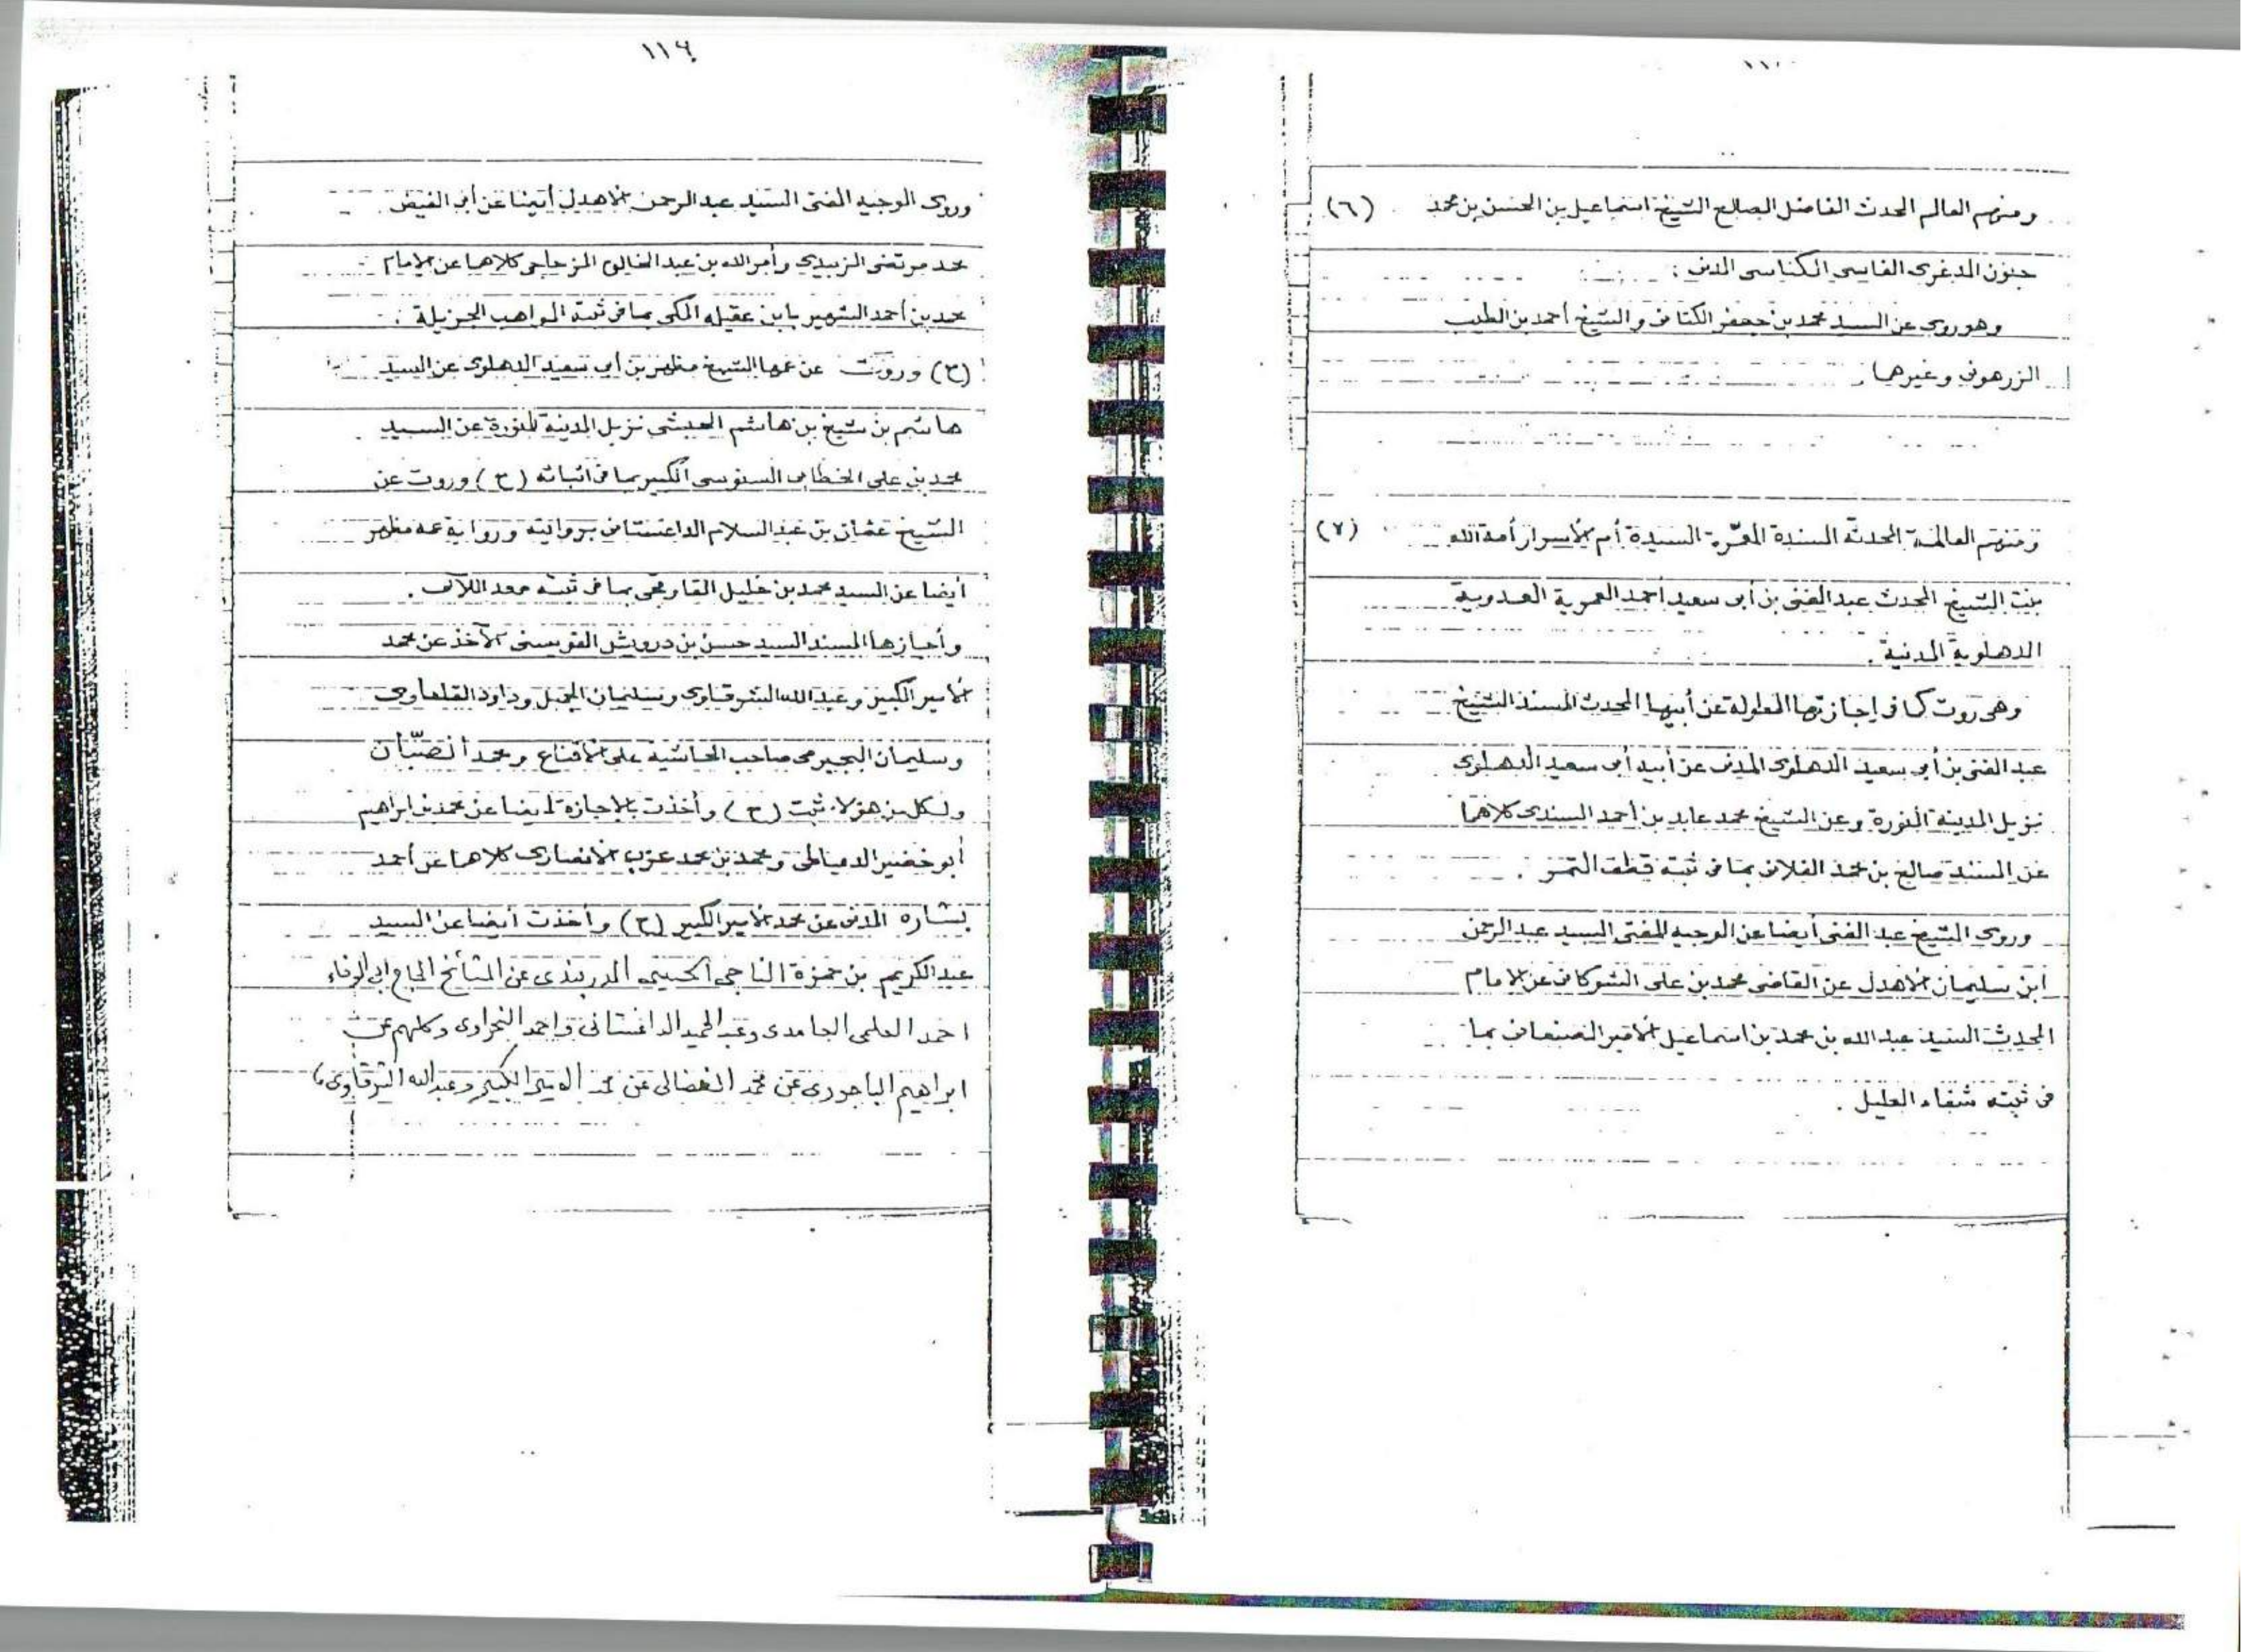 ١١٠
ومنهم العالم المحدث الفاضل الصالح الشيخ اسماعيل بن الحسن بن محمد (٦)
جنون المدغرى الفاسى المكناسى المدنى :
وهو روى عن السيد محمد بن جعفر الكتانى والشيخ أحمد بن الطيب
الزرهونى وغيرهما .
ومنهم العالمة المحدثة المسندة المعمرة السيدة أم الأسرار أمة الله (٧)
بنت الشيخ المحدث عبد الغنى بن أبى سعيد أحمد العمرية العدوية
الدهلوية المدنية .
وهى روت كما فى إجازتها المطولة عن أبيها المحدث المسند الشيخ
عبد الغنى بن أبى سعيد الدهلوى المدنى عن أبيه أبى سعيد الدهلوى
نزيل المدينة المنورة وعن الشيخ محمد عابد بن أحمد السندى كلاهما
عن المسند صالح بن محمد الفلانى بما فى ثبته قطف الثمر .
وروى الشيخ عبد الغنى أيضا عن الوجيه المفتى السيد عبد الرحمن
ابن سليمان الأهدل عن القاضى محمد بن على الشوكانى عن الامام
المحدث السيد عبد الله بن محمد بن اسماعيل الأمير الصنعانى بما
فى ثبته شفاء العليل .
١١٦
وروى الوجيه المفتى السيد عبد الرحمن الأهدل أيضا عن أبى الفيض
محمد مرتضى الزبيدى وأمر الله بن عبد الخالق المزجاجى كلاهما عن الإمام
محمد بن أحمد الشهير بابن عقيله المكى بما فى ثبته المواهب الجزيلة .
(ح) وروت عن عمها الشيخ مظهر بن أبى سعيد الدهلوى عن السيد
هاشم بن شيخ بن هاشم الحبشى نزيل المدينة المنورة عن السيد
محمد بن على الخطابى السنوسى الكبير بما فى اثباته (ح) وروت عن
الشيخ عثمان بن عبد السلام الداغستانى بروايته ورواية عمه مظهر
أيضا عن السيد محمد بن خليل القاوقجى بما فى ثبته معدن اللآلى .
وأجازها المسند السيد حسن بن درويش القويسنى الآخذ عن محمد
الأمير الكبير وعبد الله الشرقاوى وسليمان الجمل وداود القلعاوى
وسليمان البجيرمى صاحب الحاشية على الأقناع ومحمد الصبّان
ولكل من هؤلاء ثبت (ح) وأخذت بالإجازة أيضا عن محمد بن ابراهيم
أبو خضير الدمياطى ومحمد بن محمد عزب الأنصارى كلاهما عن أحمد
بشاره المدنى عن محمد الأمير الكبير (ح) وأخذت أيضا عن السيد
عبد الكريم بن حمزة الناجى الحسينى الدربندى عن المشائخ الحاج ابى الوفاء
احمد العلمى الجامدى وعبد الحميد الداغستانى واحمد النحراوى وكلهم عن
ابراهيم الباجورى عن محمد الفضالى عن محمد الامير الكبير وعبد الله الشرقاوى